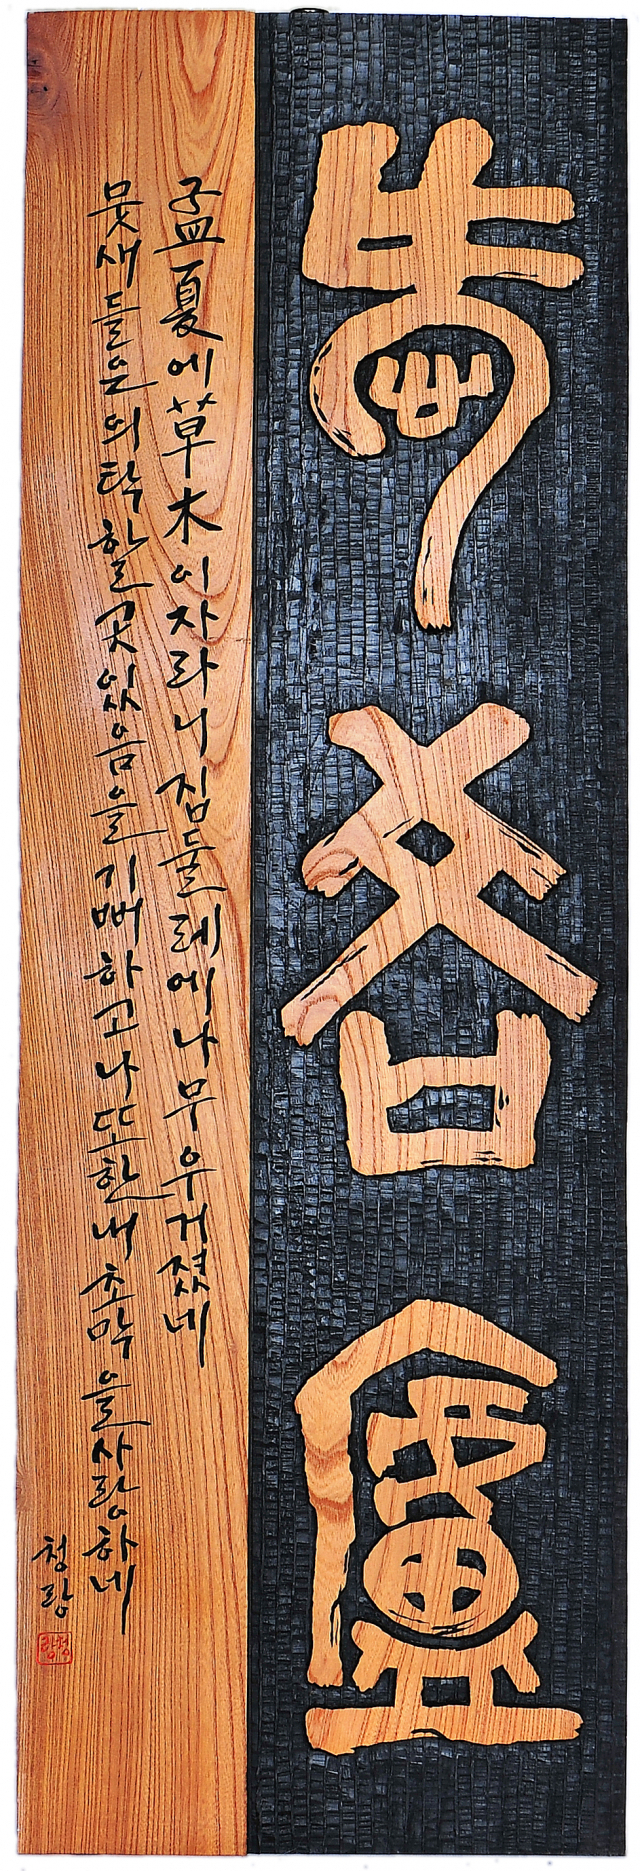 愛吾廬
孟夏에草木이자라니집둘레에나무우거졌네
뭇새들은의탁할곳있음을기뻐하고나또한내초막을사랑하네
청랑
청랑